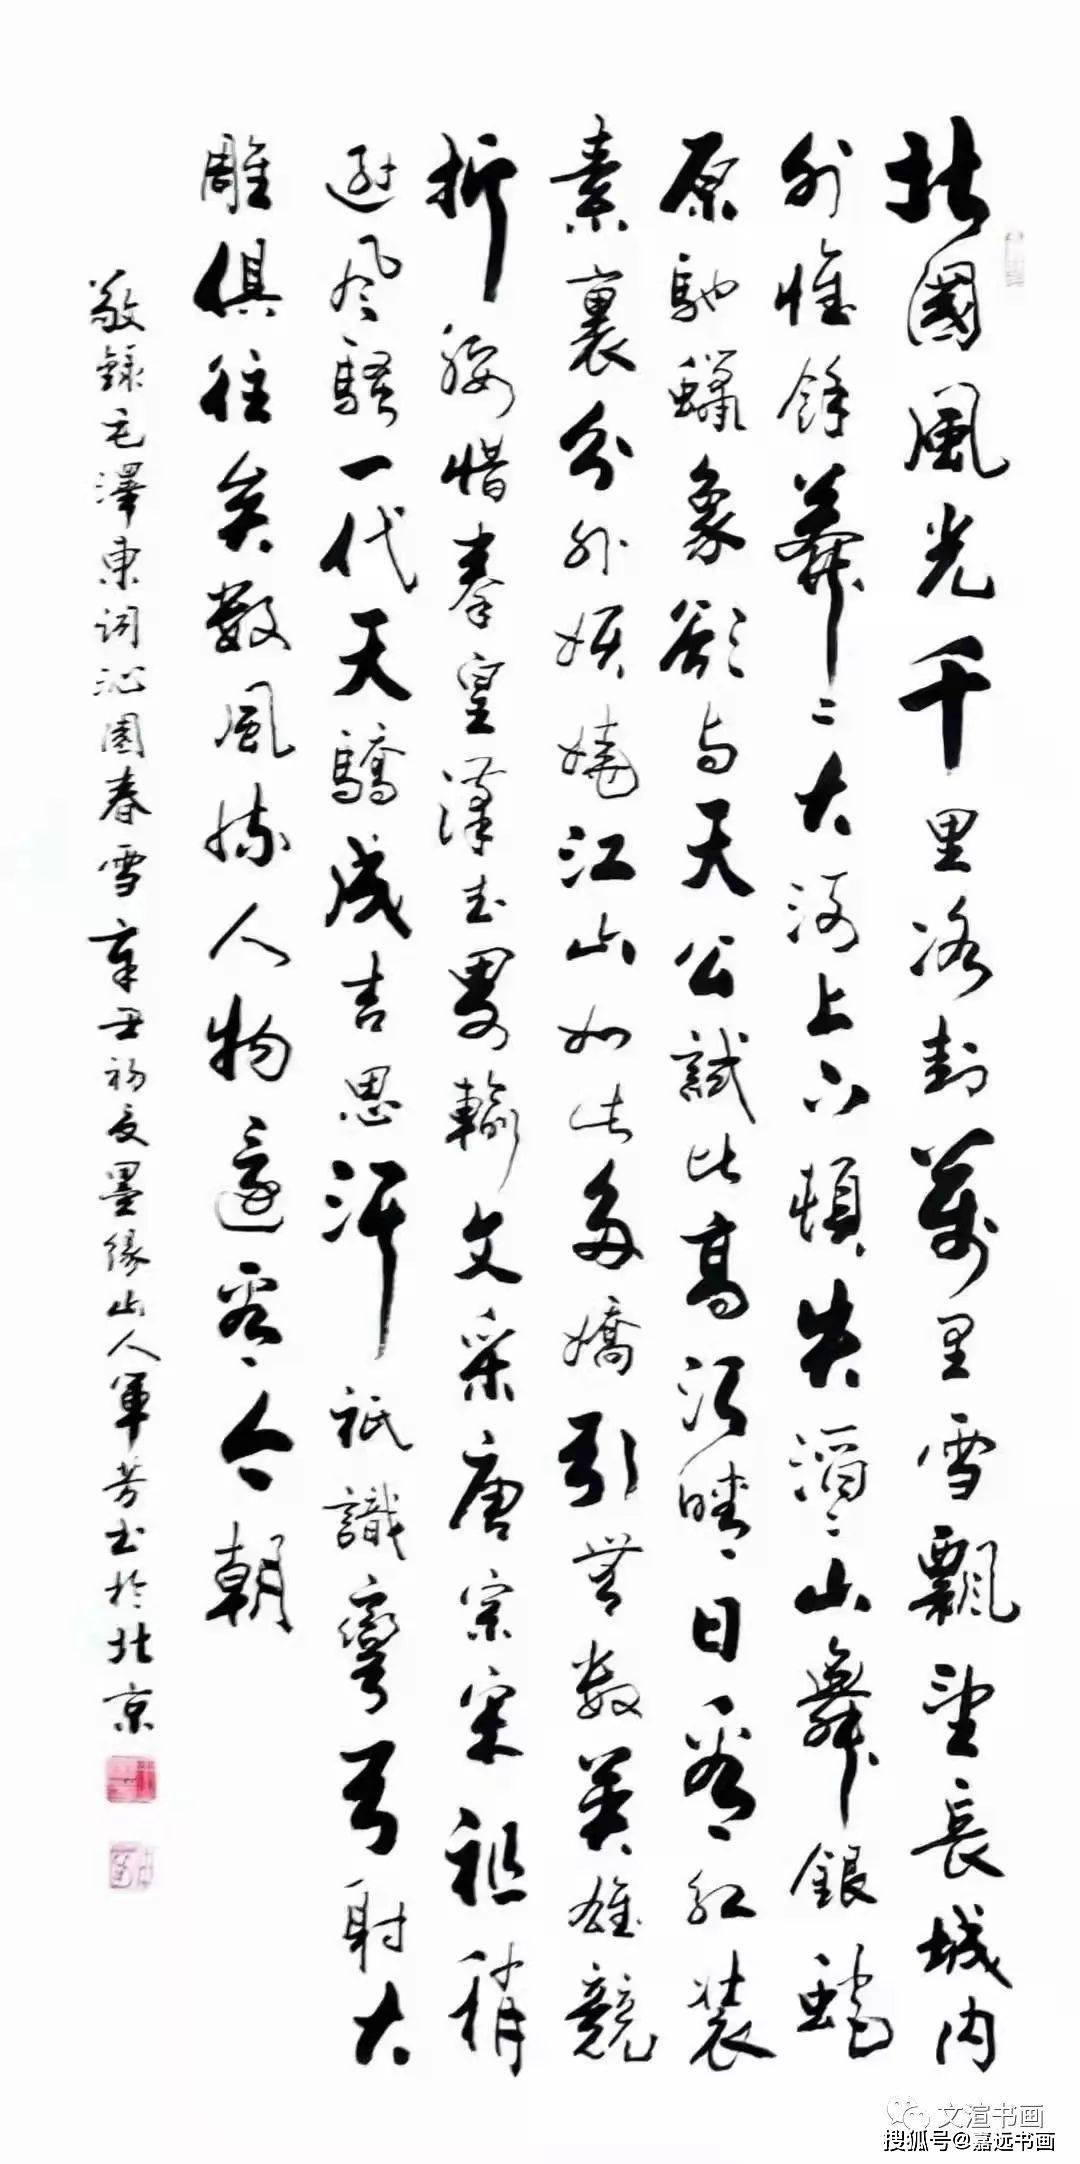 北國風光千里冰封萬里雪飄望長城内
外惟餘莽〻大河上下頓失滔〻山舞銀蛇
原馳蠟象欲与天公試比高須晴日看紅裝
素裹分外妖嬈江山如此多嬌引無数英雄競
折腰惜秦皇漢武畧輸文采唐宗宋祖稍
遜風騷一代天驕成吉思汗祇識彎弓射大
雕俱往矣數風流人物還看今朝
敬錄毛澤東詞沁園春雪辛丑初夏墨緣山人軍芳书於北京
文渲书画
搜狐号@嘉远书画